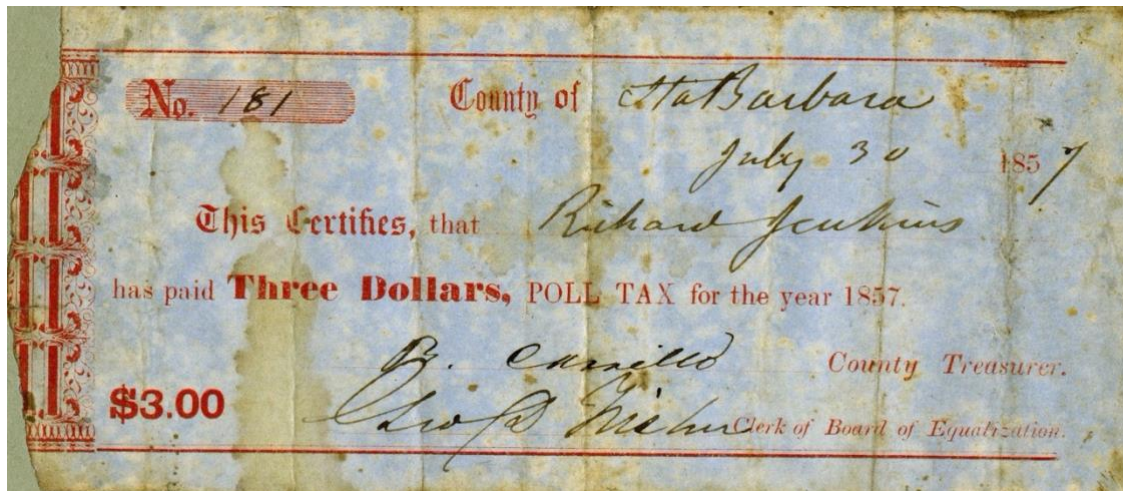 No. 181 County of Sta Barbara
July 30 1857
This Certifies, that Richard Jenkins
has paid Three Dollars, POLL TAX for the year 1857.
B. Carrillo County Treasurer.
$3.00
Clerk of Board of Equalization.